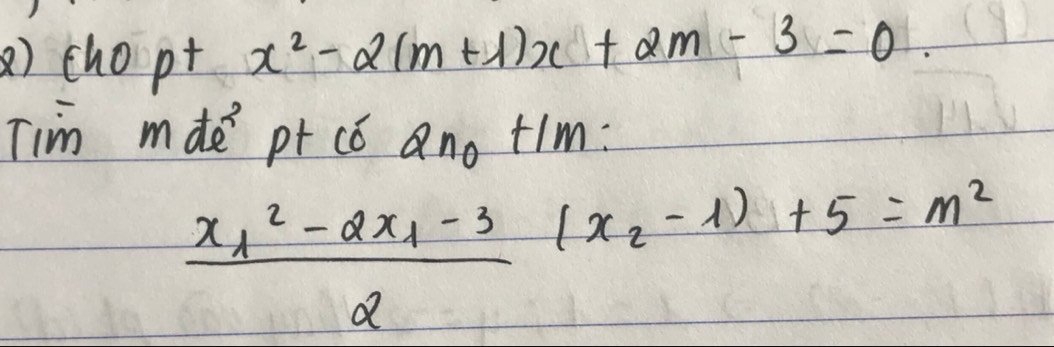 2) Cho pt x² - 2(m+1)x + 2m - 3 = 0.
Tìm m để pt có 2n₀ t/m:
x₁² - 2x₁ - 3 (x₂ - 1) + 5 = m²
2